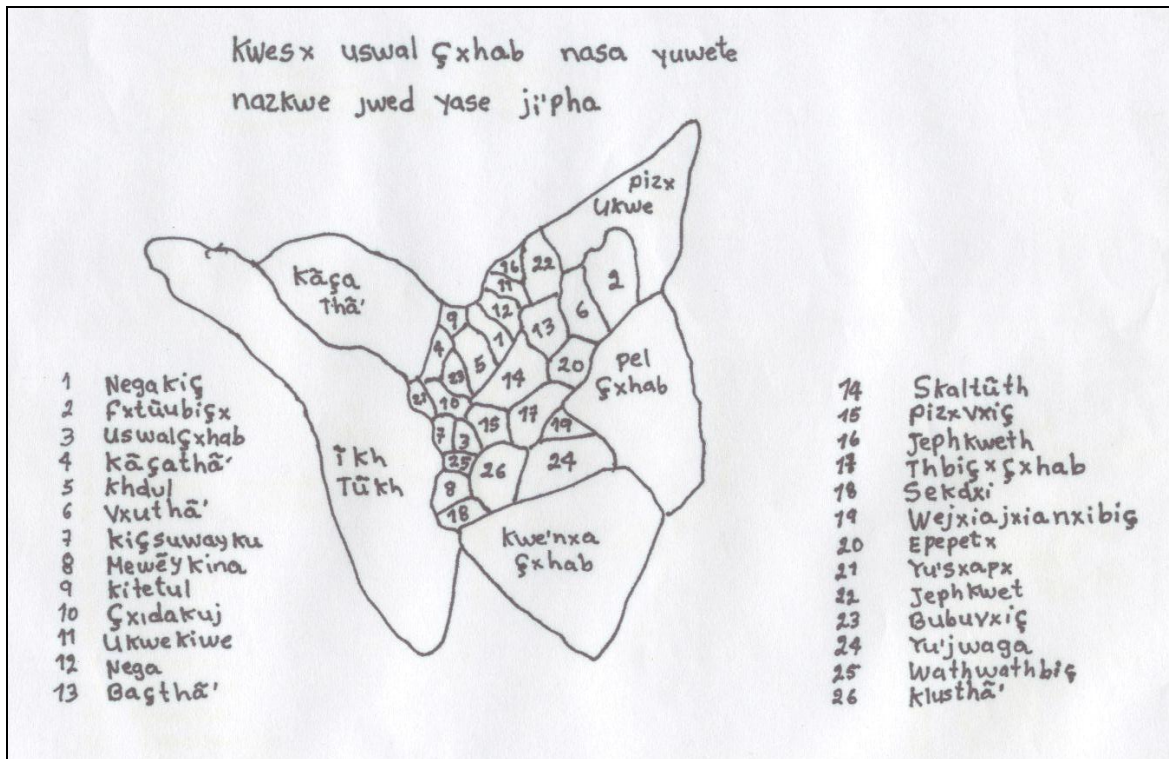 Kwesx uswal çxhab nasa yuwete
nazkwe jwed yase ji'pha
pizx
Ukwe
Kãça
Thã'
pel
çxhab
ĩkh
Tũkh
Kwe'nxa
çxhab
16
22
2
11
12
6
9
13
1
4
5
23
20
14
21
10
17
15
19
7
3
25
26
24
8
18
1 Negakiç
2 fxtũubiçx
3 uswalçxhab
4 Kãçathã'
5 Khdul
6 Vxuthã'
7 Kiçsuwayku
8 Mewẽykina
9 Kitetul
10 Çxidakuj
11 Ukwekiwe
12 Nega
13 Baçthã'
14 Skaltũth
15 Pizxvxiç
16 Jephkweth
17 Thbiçxçxhab
18 Sekdxi
19 Wejxiajxianxibiç
20 Epepetx
21 Yu'sxapx
22 Jephkwet
23 Bubuvxiç
24 Yu'jwaga
25 Wathwathbiç
26 Klusthã'